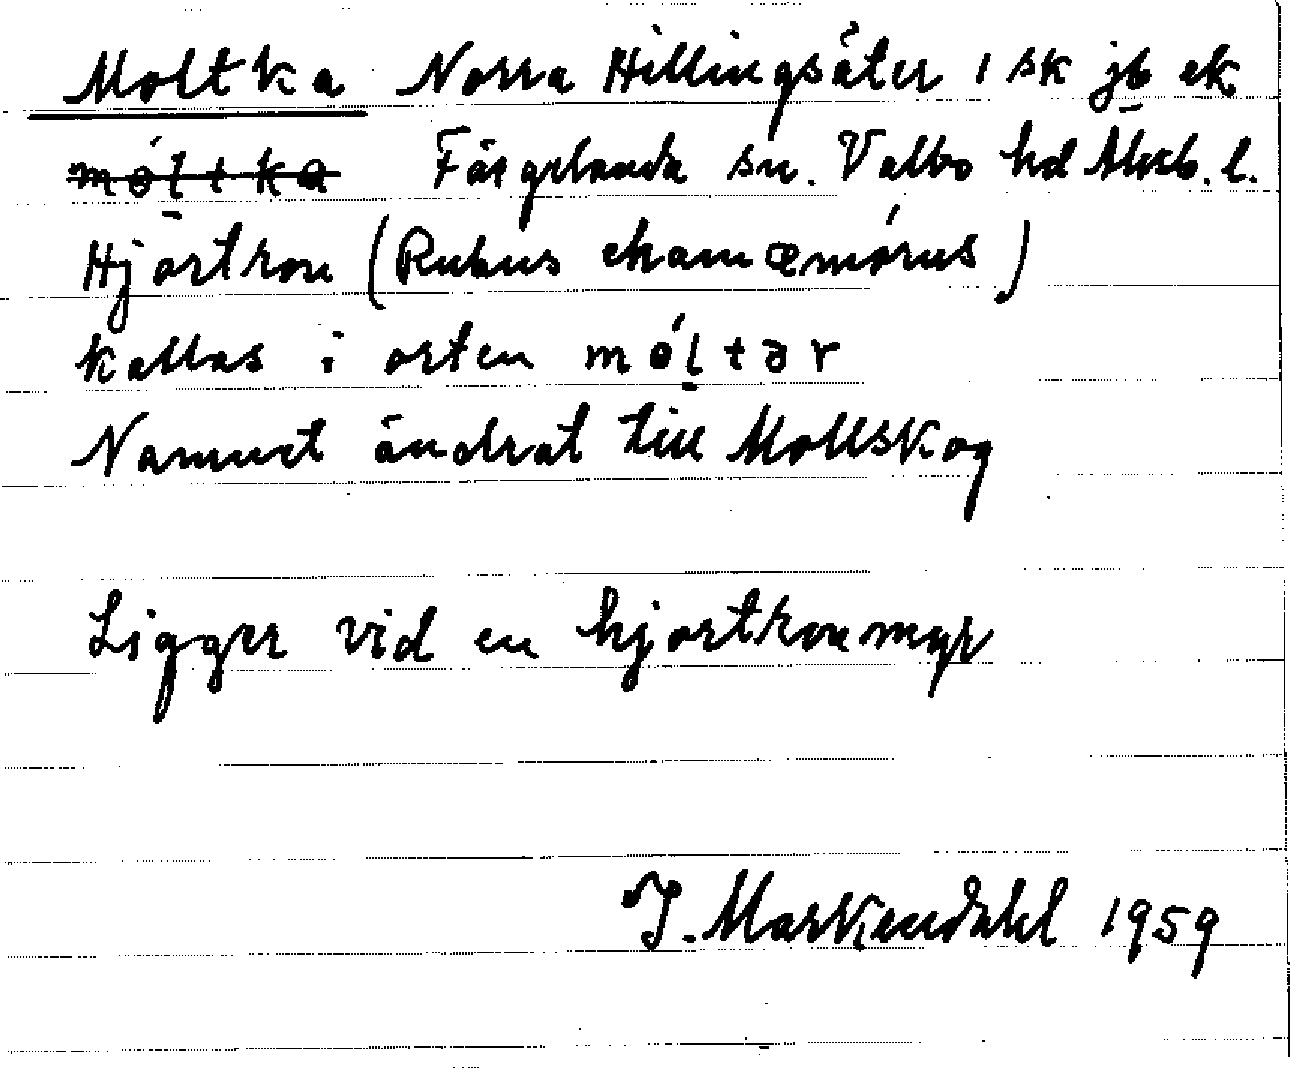 Moltka Norra Hillingsäter 1 sk jb ek
móltka Färgelanda sn. Valbo hd Älvsb. l.
Hjortron (Rubus chamæmórus)
kallas i orten móltər
Namnet ändrat till Mollskog
Ligger vid en hjortronmyr
J. Markendahl 1959